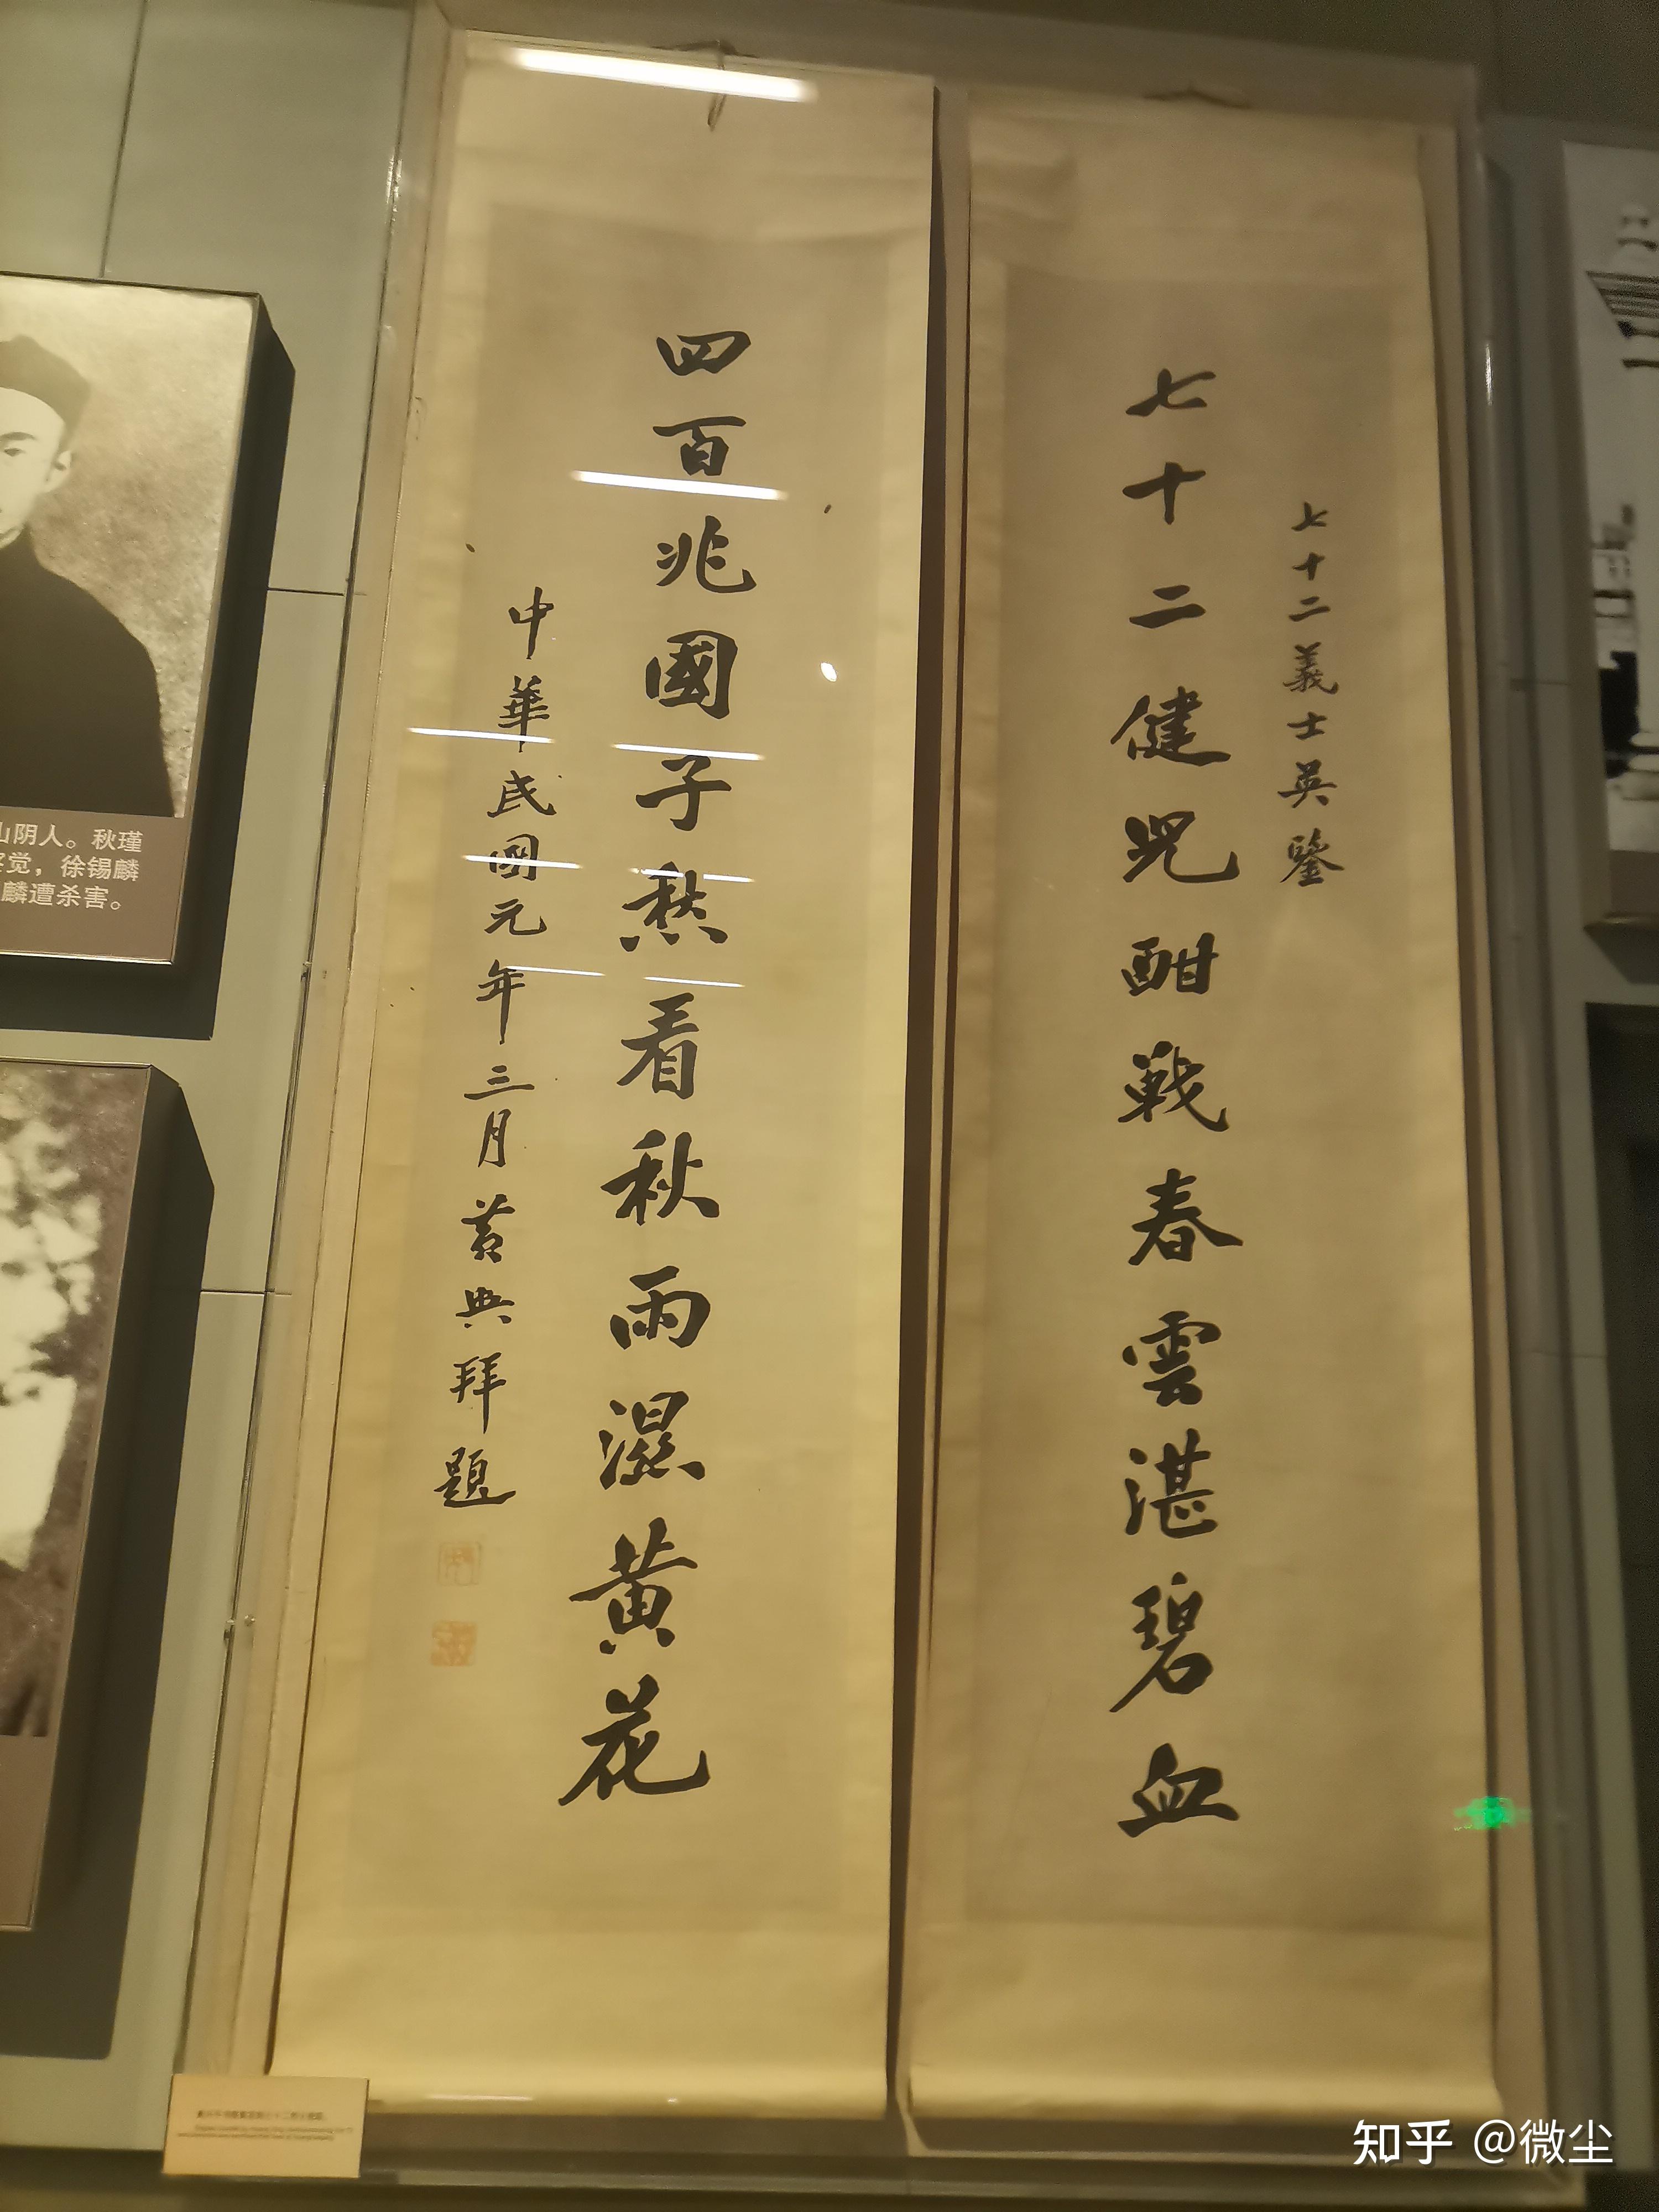 七十二義士英鑒
七十二健児酣戰春雲湛碧血
四百兆國子愁看秋雨濕黄花
中華民國元年三月黄興拜題
山阴人。秋瑾
觉，徐锡麟
麟遭杀害。
知乎 @微尘